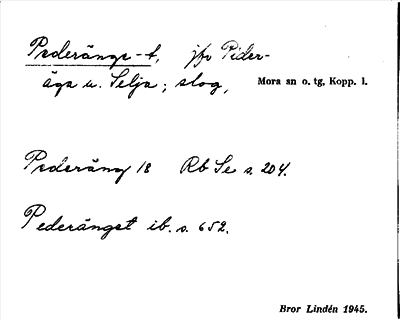 Pederänge-t, jfr Pider-
äga u. Selja; slog, Mora sn o. tg, Kopp. l.
Pederäng 18 Rb Se s. 204.
Pederänget ib. s. 652.
Bror Lindén 1945.